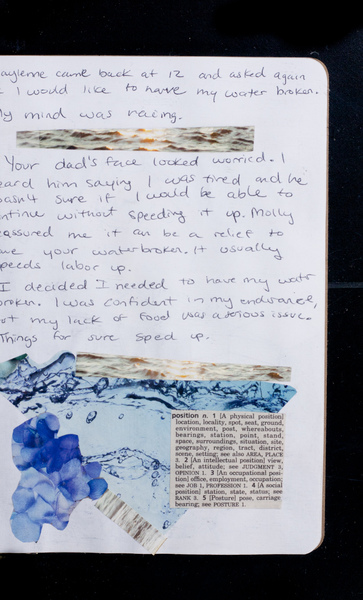 aylene came back at 12 and asked again
I would like to have my water broken.
My mind was racing.
Your dad's face looked worried. I
eard him saying I was tired and he
asn't sure if I would be able to
ntinue without speeding it up. Molly
eassured me it can be a relief to
ave your water broken. It usually
peeds labor up.
I decided I needed to have my watr
roken. I was confident in my endurance,
ut my lack of food was a serious issue.
Things for sure sped up.
position n. 1 [A physical position]
location, locality, spot, seat, ground,
environment, post, whereabouts,
bearings, station, point, stand,
space, surroundings, situation, site,
geography, region, tract, district,
scene, setting; see also AREA, PLACE
3. 2 [An intellectual position] view,
belief, attitude; see JUDGMENT 3,
OPINION 1. 3 [An occupational posi-
tion] office, employment, occupation;
see JOB 1, PROFESSION 1. 4 [A social
position] station, state, status; see
RANK 3. 5 [Posture] pose, carriage,
bearing; see POSTURE 1.